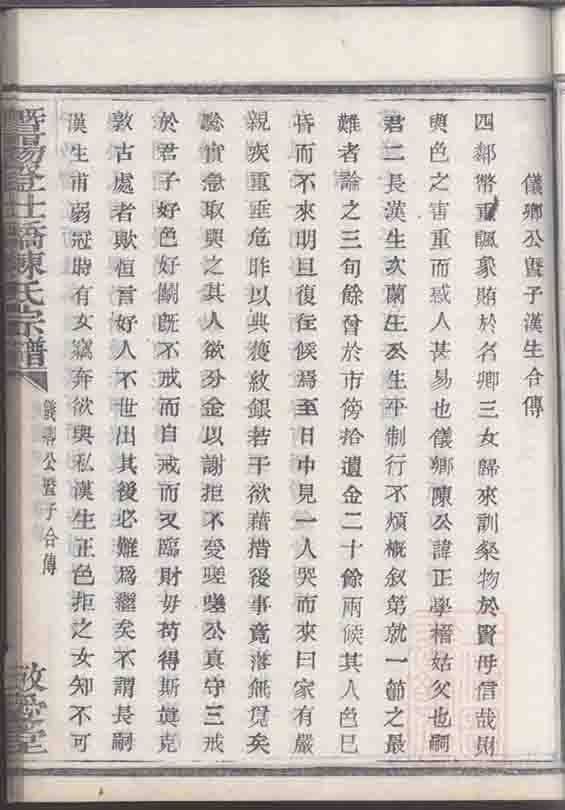 儀卿公暨子漢生合傳
四鄰幣重諷象賄於名卿三女歸來訓粲物於賢母信哉財
與色之害重而惑人甚易也儀卿陳公諱正學楷姑父也嗣
君二長漢生次蘭生公生平制行不煩概叙第就一節之最
難者論之三旬餘曾於市傍拾遺金二十餘兩候其人色已
昏而不來明旦復往候焉至日中見一人哭而來曰家有嚴
親疾重垂危昨以典獲紋銀若干欲藉措後事竟落無覓矣
驗實急取與之其人欲分金以謝拒不受嗟嗟公真守三戒
於君子好色好鬬旣不戒而自戒而又臨財毋苟得斯眞克
敦古處者歟恒言好人不世出其後必難爲繼矣不謂長嗣
漢生甫弱冠時有女竊奔欲與私漢生正色拒之女知不可
暨陽 仕橋陳氏宗譜
儀卿公暨子合傳